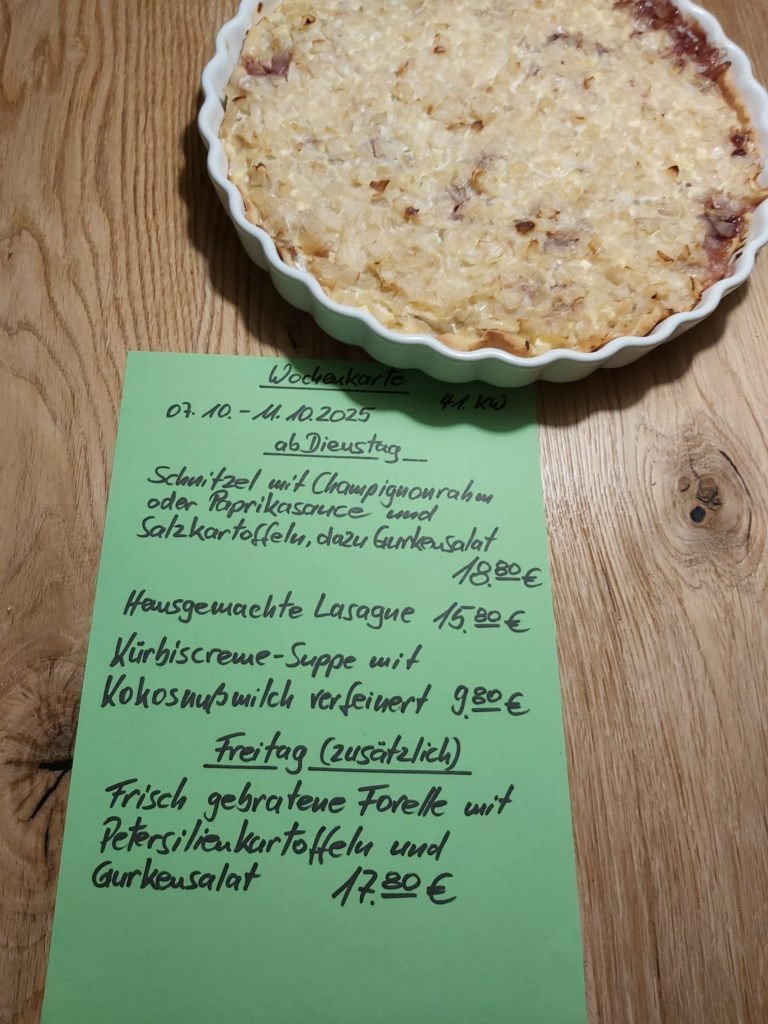 Wochenkarte
07.10. - 11.10.2025 41. KW
ab Dienstag
Schnitzel mit Champignonrahm
oder Paprikasauce und
Salzkartoffeln, dazu Gurkensalat
18.80 €
Hausgemachte Lasagne 15.80 €
Kürbiscreme-Suppe mit
Kokosnußmilch verfeinert 9.80 €
Freitag (zusätzlich)
Frisch gebratene Forelle mit
Petersilienkartoffeln und
Gurkensalat 17.80 €